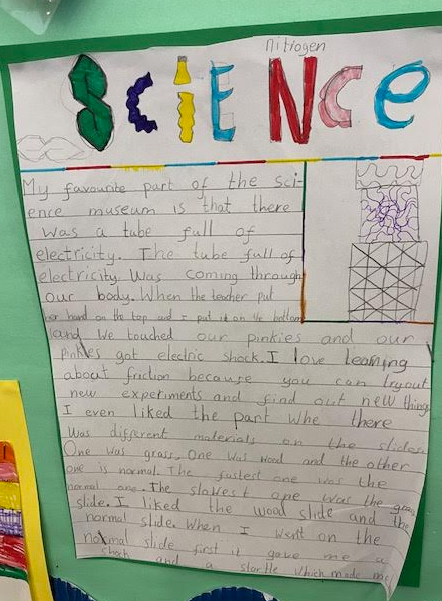 nitrogen
SCIENCE
My favourite part of the sci-
ence museum is that there
was a tube full of
electricity. The tube full of
electricity was coming through
our body. When the teacher put
her hand on the top and I put it on the bottom
and we touched our pinkies and our
pinkies got electric shock. I love learning
about friction because you can try out
new experiments and find out new things
I even liked the part whe there
was different materials on the slides
One was grass. One was wood and the other
one is normal. The fastest one was the
normal one. The slowest one was the grass
slide. I liked the wood slide and the
normal slide. When I went on the
normal slide first it gave me a
shock and a startle which made me